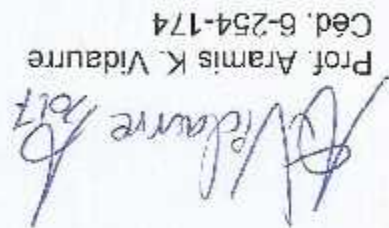 AVidaurre
2017
Prof. Aramis K. Vidaurre
Céd. 6-254-174